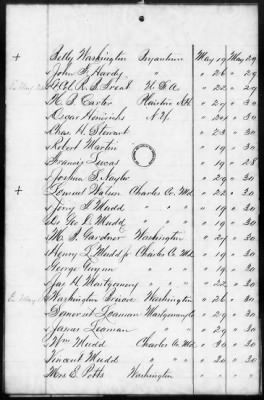 + Betty Washington Bryantown May 19 May 29
" John F. Hardy " " 26 " 29
Col R. S. Treat U. S. A " 22 " 29
H. B. Carter N.H. " 29 " 30
Oscar Heinrichs N.Y. " 24 " 30
Chas H. Stewart " 28 " 30
Robert Martin " 19 " 30
Francis Lucas " 19 " 28
Joshua S. Naylor " 29 " 30
+ Lemuel Watson Charles Co. Md. " 22 " 30
" Jery T Mudd " " " " 30
Dr Geo D. Mudd " " " " 30
M. L. Gardner Washington " 29 " 30
Henry L. Mudd Jr Charles Co Md. " 29 " 30
George " " " " 30
Jas H Montgomery " 22 " 30
Washington Briscoe Washington " 26 " 30
Somerset Leaman Montgomery Co " 29 " 30
James Leaman " " 29 " 30
Wm Mudd Charles Co. Md. " 30 " 30
Vincent Mudd " " " 30 " 30
Mrs E. Potts Washington " "